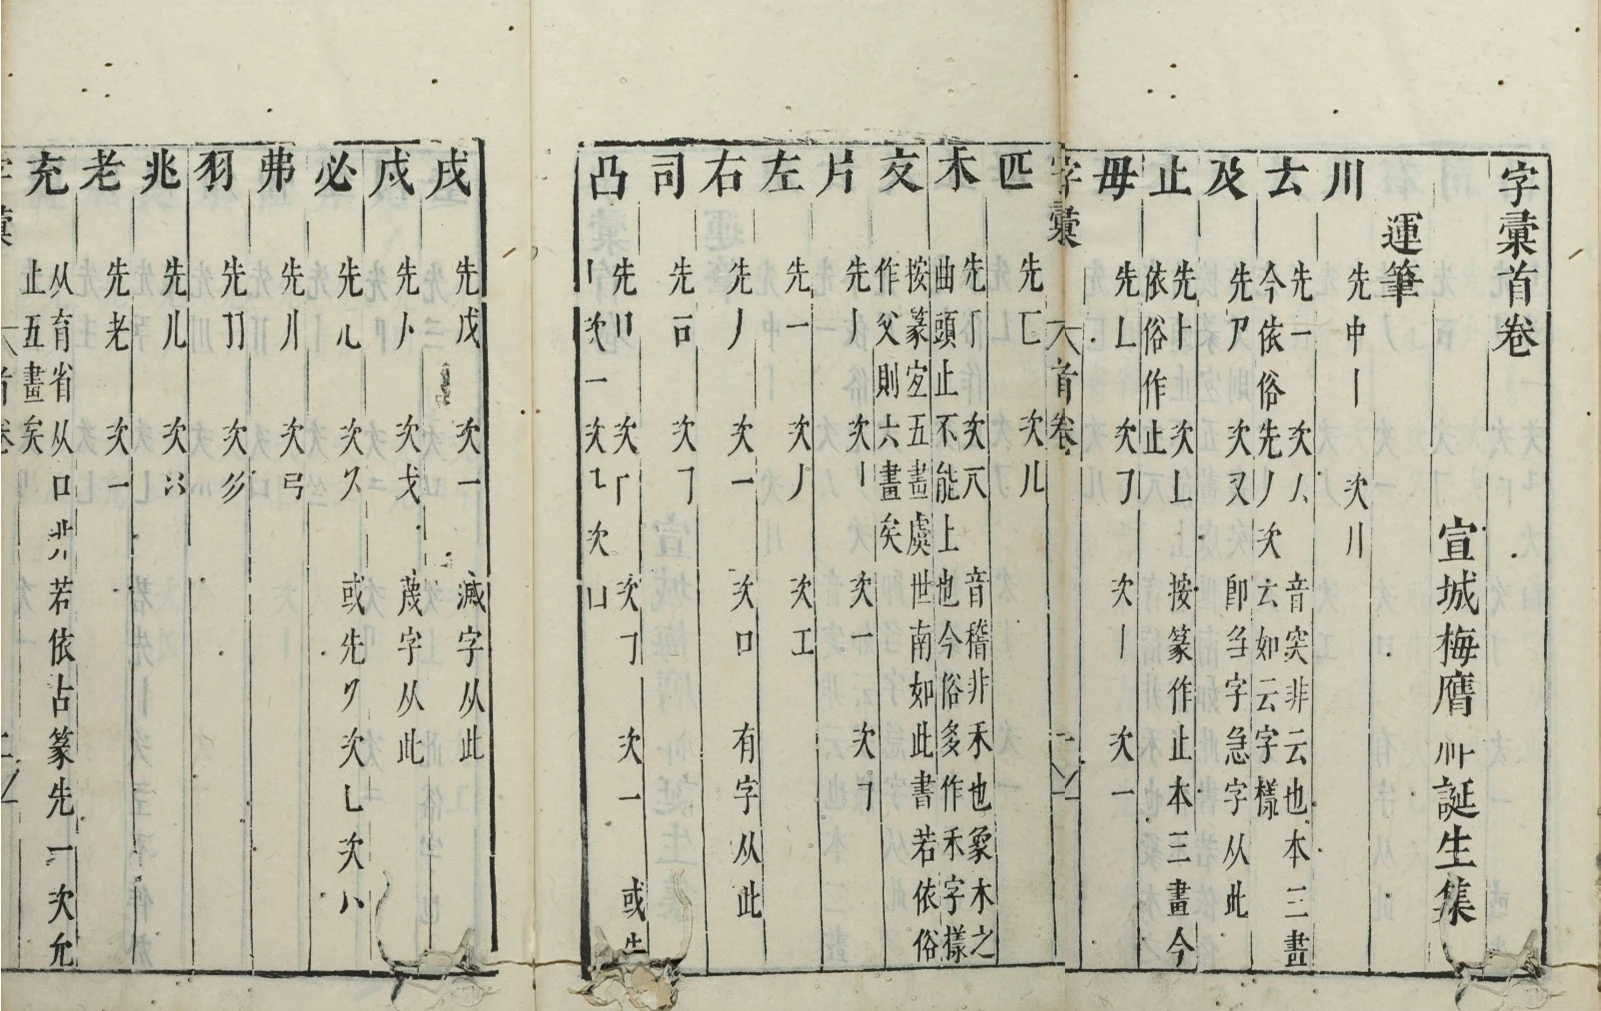 字彙首卷
宣城梅膺祚誕生集
運筆
川 先中丨 次川
𠫓 先一 次𠆢 音突非云也本三畫
今依俗先丿次厶如云字樣
及 先𠂆 次又 卽刍字急字从此
止 先⺊ 次𠃊 按篆作止本三畫今
依俗作止
毋 先𠃊 次𠃌 次丨 次一
字彙 首卷 一
匹 先匚 次儿
禾 先𠂆 次兀 音稽非禾也象木之
曲頭止不能上也今俗多作禾字樣
攵 按篆文五畫虞世南如此書若依俗
作父則六畫矣
片 先丿 次丨 次一 次𠃌
左 先一 次丿 次工
右 先丿 次一 次口 有字从此
司 先𠮛 次𠃌
凸 先〢 次𠂆 次𠃌 次一 或先
丨次一次㇅次凵
戌 先戊 次一 滅字从此
戍 先卜 次戈 蔑字从此
必 先㇃ 次㐅 或先𠂊次乚次八
弗 先〢 次弓
羽 先𠃜 次彡
兆 先儿 次⺀
老 先老 次一
充 从育省从口𠀎若依古篆先一次允
止五畫矣
字彙 首卷 二